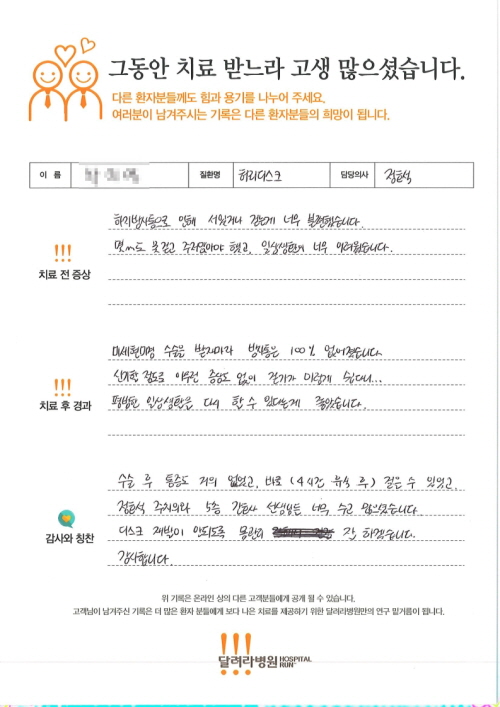 그동안 치료 받느라 고생 많으셨습니다.
다른 환자분들께도 힘과 용기를 나누어 주세요.
여러분이 남겨주시는 기록은 다른 환자분들의 희망이 됩니다.
이 름 질환명 허리디스크 담당의사 정호석
하지방사통으로 인해 서있거나 걷는게 너무 불편했습니다.
몇m도 못걷고 주저앉아야 했고, 일상생활이 너무 어려웠습니다.
!!!
치료 전 증상
미세현미경 수술을 받자마자 방사통은 100% 없어졌습니다.
신기할 정도로 아무런 증상도 없이 걷기가 이렇게 쉽다니...
평범한 일상생활을 다시 할 수 있다는게 좋았습니다.
!!!
치료 후 경과
수술 후 통증도 거의 없었고, 바로 (4시간 휴식 후) 걸을 수 있었고,
정호석 주치의와 5층 간호사 선생님들 너무 수고 많으셨습니다.
디스크 재발이 안되도록 관리 잘 하겠습니다.
감사합니다.
감사와 칭찬
위 기록은 온라인 상의 다른 고객분들에게 공개 될 수 있습니다.
고객님이 남겨주신 기록은 더 많은 환자 분들에게 보다 나은 치료를 제공하기 위한 달려라병원만의 연구 밑거름이 됩니다.
!!!
달려라병원 HOSPITAL RUN